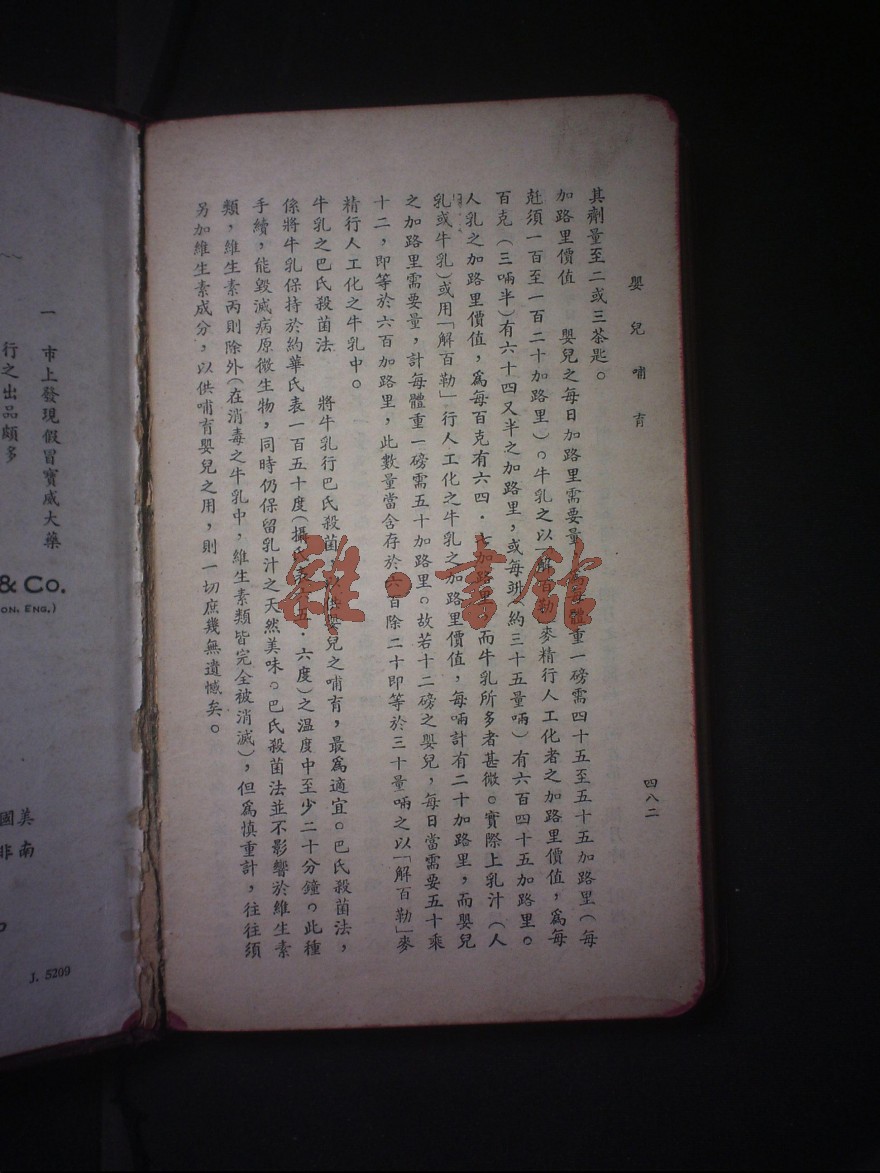 嬰兒哺育
四八二
其劑量至二或三茶匙。
加路里價值　嬰兒之每日加路里需要量，為每體重一磅需四十五至五十五加路里（每
兙須一百至一百二十加路里）。牛乳之以「解百勒」麥精行人工化者之加路里價值，為每
百克（三啢半）有六十四又半之加路里，或每竔（約三十五量啢）有六百四十五加路里。
人乳之加路里價值，為每百克有六四．七加路里。而牛乳所多者甚微。實際上乳汁（人
乳或牛乳）或用「解百勒」行人工化之牛乳之加路里價值，每啢計有二十加路里，而嬰兒
之加路里需要量，計每體重一磅需五十加路里。故若十二磅之嬰兒，每日當需要五十乘
十二，即等於六百加路里，此數量當含存於六百除二十即等於三十量啢之以「解百勒」麥
精行人工化之牛乳中。
牛乳之巴氏殺菌法　將牛乳行巴氏殺菌，以供嬰兒之哺育，最為適宜。巴氏殺菌法，
係將牛乳保持於約華氏表一百五十度（攝氏表六五．六度）之溫度中至少二十分鐘。此種
手續，能毀滅病原微生物，同時仍保留乳汁之天然美味。巴氏殺菌法並不影響於維生素
類，維生素丙則除外（在消毒之牛乳中，維生素類皆完全被消滅），但為慎重計，往往須
另加維生素成分，以供哺育嬰兒之用，則一切庶幾無遺憾矣。
一　市上發現假冒寶威大藥
行之出品頗多
& Co.
ON, ENG.)
美國
南非
J. 5209
雜·書館